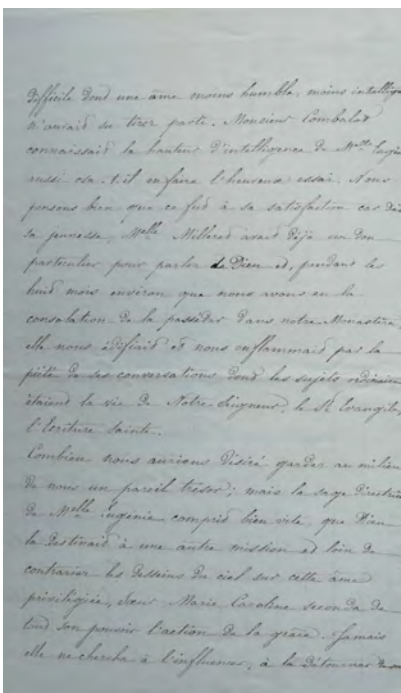 difficile dont une âme moins humble, moins intellige
n'aurait su tirer parti. Monsieur Combalot
connaissait la hauteur d'intelligence de Melle Eugén
aussi osa-t-il en faire l'heureux essai. Nous
pensons bien que ce fut à sa satisfaction car dès
sa jeunesse, Melle Milleret avait déjà un don
particulier pour parler de Dieu et, pendant les
huit mois environ que nous avons eu la
consolation de la posséder dans notre Monastère,
elle nous édifiait et nous enflammait par la
piété de ses conversations dont les sujets ordinaire
étaient la vie de Notre Seigneur, le St Evangile,
l'Ecriture Sainte.
Combien nous aurions désiré garder au milieu
de nous un pareil trésor; mais la sage directrice
de Melle Eugénie comprit bien vite que Dieu
la destinait à une autre mission et loin de
contrarier les desseins du ciel sur cette âme
privilégiée, Sœur Marie Caroline seconda de
tout son pouvoir l'action de la grâce. Jamais
elle ne chercha à l'influencer, à la détourner de